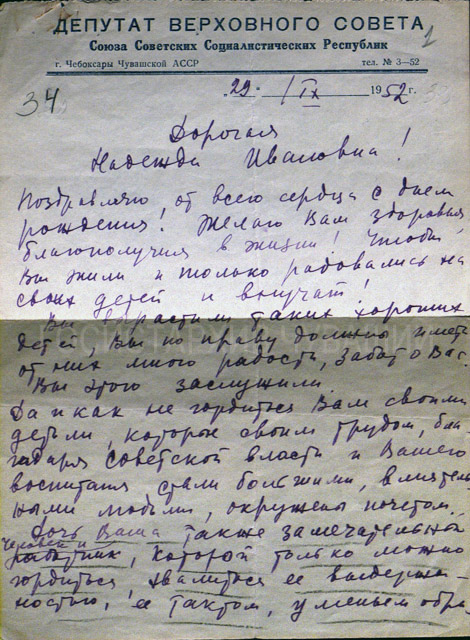 ДЕПУТАТ ВЕРХОВНОГО СОВЕТА
Союза Советских Социалистических Республик
г. Чебоксары Чувашской АССР тел. № 3—52
1
34
"29." / IX 1952 г.
Дорогая
Надежда Ивановна!
Поздравляю, от всего сердца с днем
рождения! Желаю Вам здоровья,
благополучия в жизни! Чтобы
Вы жили и только радовались на
своих детей и внучат!
Вы вырастили таких хороших
детей, Вы по праву должны иметь
от них много радость, забот о Вас.
Вы этого заслужили.
Да и как не гордиться Вам своими
детьми, которые своим трудом, бла-
гадаря советской власти и Вашего
воспитания стали большими, влиятель-
ными людьми, окружены почетом.
Дочь Ваша также замечательный
человек и
работник, которой только можно
гордиться, хвалиться ее выдержан-
ностью, ее тактом, уменьем обра-